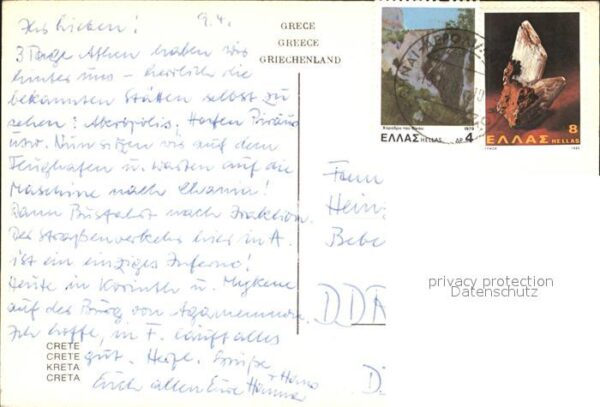 Ihr Lieben! 9.4.
3 Tage Athen haben wir
hinter uns – herrlich die
bekannten Stätten selbst zu
sehen! Akropolis, Hafen Piräus
usw. Nun sitzen wir auf dem
Flughafen u. warten auf die
Maschine nach Chania!
Dann Busfahrt nach Iraklion.
Der Straßenverkehr hier in A.
ist ein einziges Inferno!
Heute in Korinth u. Mykene
auf der Burg von Agamemnon.
Ich hoffe, in F. läuft alles
gut. Herzl. Grüße
Euch allen Eure Hanna
+ Hans
GRECE
GREECE
GRIECHENLAND
CRETE
CRETE
KRETA
CRETA
ΕΛΛΑΣ HELLAS ΔΡ. 4
1979
ΕΛΛΑΣ HELLAS 8
Fam
Hein
Bebe
DDR
D
privacy protection
Datenschutz